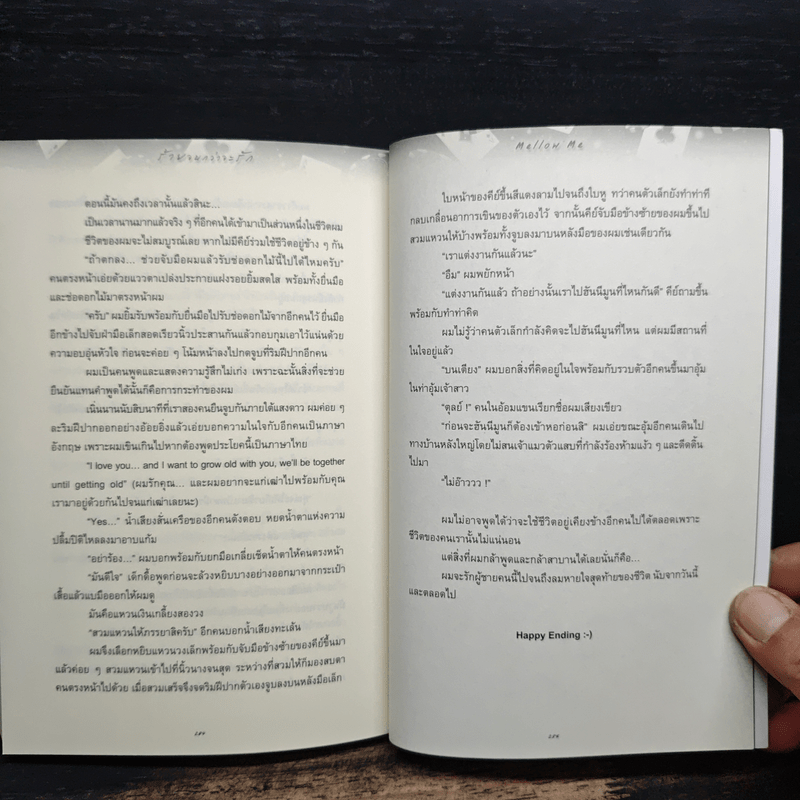 ตอนนี้มันคงถึงเวลานั้นแล้วสินะ...
เป็นเวลานานมากแล้วจริง ๆ ที่อีกคนได้เข้ามาเป็นส่วนหนึ่งในชีวิตผม
ชีวิตของผมจะไม่สมบูรณ์เลย หากไม่มีคีย์ร่วมใช้ชีวิตอยู่ข้าง ๆ กัน
“ถ้าตกลง... ช่วยจับมือผมแล้วรับช่อดอกไม้นี้ไปได้ไหมครับ”
คนตรงหน้าเอ่ยด้วยแววตาเปล่งประกายแฝงรอยยิ้มสดใส พร้อมทั้งยื่นมือ
และช่อดอกไม้มาตรงหน้าผม
“ครับ” ผมยิ้มรับพร้อมกับยื่นมือไปรับช่อดอกไม้จากอีกคนไว้ ยื่นมือ
อีกข้างไปจับฝ่ามือเล็กสอดเรียวนิ้วประสานกันแล้วกอบกุมเอาไว้แน่นด้วย
ความอบอุ่นหัวใจ ก่อนจะค่อย ๆ โน้มหน้าลงไปกดจูบที่ริมฝีปากอีกคน
ผมเป็นคนพูดและแสดงความรู้สึกไม่เก่ง เพราะฉะนั้นสิ่งที่จะช่วย
ยืนยันแทนคำพูดได้นั้นก็คือการกระทำของผม
เนิ่นนานนับสิบนาทีที่เราสองคนยืนจูบกันภายใต้แสงดาว ผมค่อย ๆ
ละริมฝีปากออกอย่างอ้อยอิ่งแล้วเอ่ยบอกความในใจกับอีกคนเป็นภาษา
อังกฤษ เพราะผมเขินเกินไปหากต้องพูดประโยคนี้เป็นภาษาไทย
“I love you... and I want to grow old with you, we'll be together
until getting old” (ผมรักคุณ... และผมอยากจะแก่เฒ่าไปพร้อมกับคุณ
เรามาอยู่ด้วยกันไปจนแก่เฒ่าเลยนะ)
“Yes...” น้ำเสียงสั่นเครือของอีกคนดังตอบ หยดน้ำตาแห่งความ
ปลื้มปิติไหลลงมาอาบแก้ม
“อย่าร้อง...” ผมบอกพร้อมกับยกมือเกลี่ยเช็ดน้ำตาให้คนตรงหน้า
“มันดีใจ” เด็กดื้อพูดก่อนจะล้วงหยิบบางอย่างออกมาจากกระเป๋า
เสื้อแล้วแบมือออกให้ผมดู
มันคือแหวนเงินเกลี้ยงสองวง
“สวมแหวนให้ภรรยาสิครับ” อีกคนบอกน้ำเสียงทะเล้น
ผมจึงเลือกหยิบแหวนวงเล็กพร้อมกับจับมือข้างซ้ายของคีย์ขึ้นมา
แล้วค่อย ๆ สวมแหวนเข้าไปที่นิ้วนางจนสุด ระหว่างที่สวมให้ก็มองสบตา
คนตรงหน้าไปด้วย เมื่อสวมเสร็จจึงจดริมฝีปากตัวเองจูบลงบนหลังมือเล็ก
Mellow Me
ใบหน้าของคีย์ขึ้นสีแดงลามไปจนถึงใบหู ทว่าคนตัวเล็กยังทำท่าที
กลบเกลื่อนอาการเขินของตัวเองไว้ จากนั้นคีย์จับมือข้างซ้ายของผมขึ้นไป
สวมแหวนให้บ้างพร้อมทั้งจูบลงมาบนหลังมือของผมเช่นเดียวกัน
“เราแต่งงานกันแล้วนะ”
“อืม” ผมพยักหน้า
“แต่งงานกันแล้ว ถ้าอย่างนั้นเราไปฮันนีมูนที่ไหนกันดี” คีย์ถามขึ้น
พร้อมกับทำท่าคิด
ผมไม่รู้ว่าคนตัวเล็กกำลังคิดจะไปฮันนีมูนที่ไหน แต่ผมมีสถานที่
ในใจอยู่แล้ว
“บนเตียง” ผมบอกสิ่งที่คิดอยู่ในใจพร้อมกับรวบตัวอีกคนขึ้นมาอุ้ม
ในท่าอุ้มเจ้าสาว
“ตุลย์ !” คนในอ้อมแขนเรียกชื่อผมเสียงเขียว
“ก่อนจะฮันนีมูนก็ต้องเข้าหอก่อนสิ” ผมเอ่ยขณะอุ้มอีกคนเดินไป
ทางบ้านหลังใหญ่โดยไม่สนเจ้าแมวตัวแสบที่กำลังร้องห้ามแง้ว ๆ และดีดดิ้น
ไปมา
“ไม่อ๊าววว !”
ผมไม่อาจพูดได้ว่าจะใช้ชีวิตอยู่เคียงข้างอีกคนไปได้ตลอดเพราะ
ชีวิตของคนเรานั้นไม่แน่นอน
แต่สิ่งที่ผมกล้าพูดและกล้าสาบานได้เลยนั่นก็คือ...
ผมจะรักผู้ชายคนนี้ไปจนถึงลมหายใจสุดท้ายของชีวิต นับจากวันนี้
และตลอดไป
Happy Ending :-)